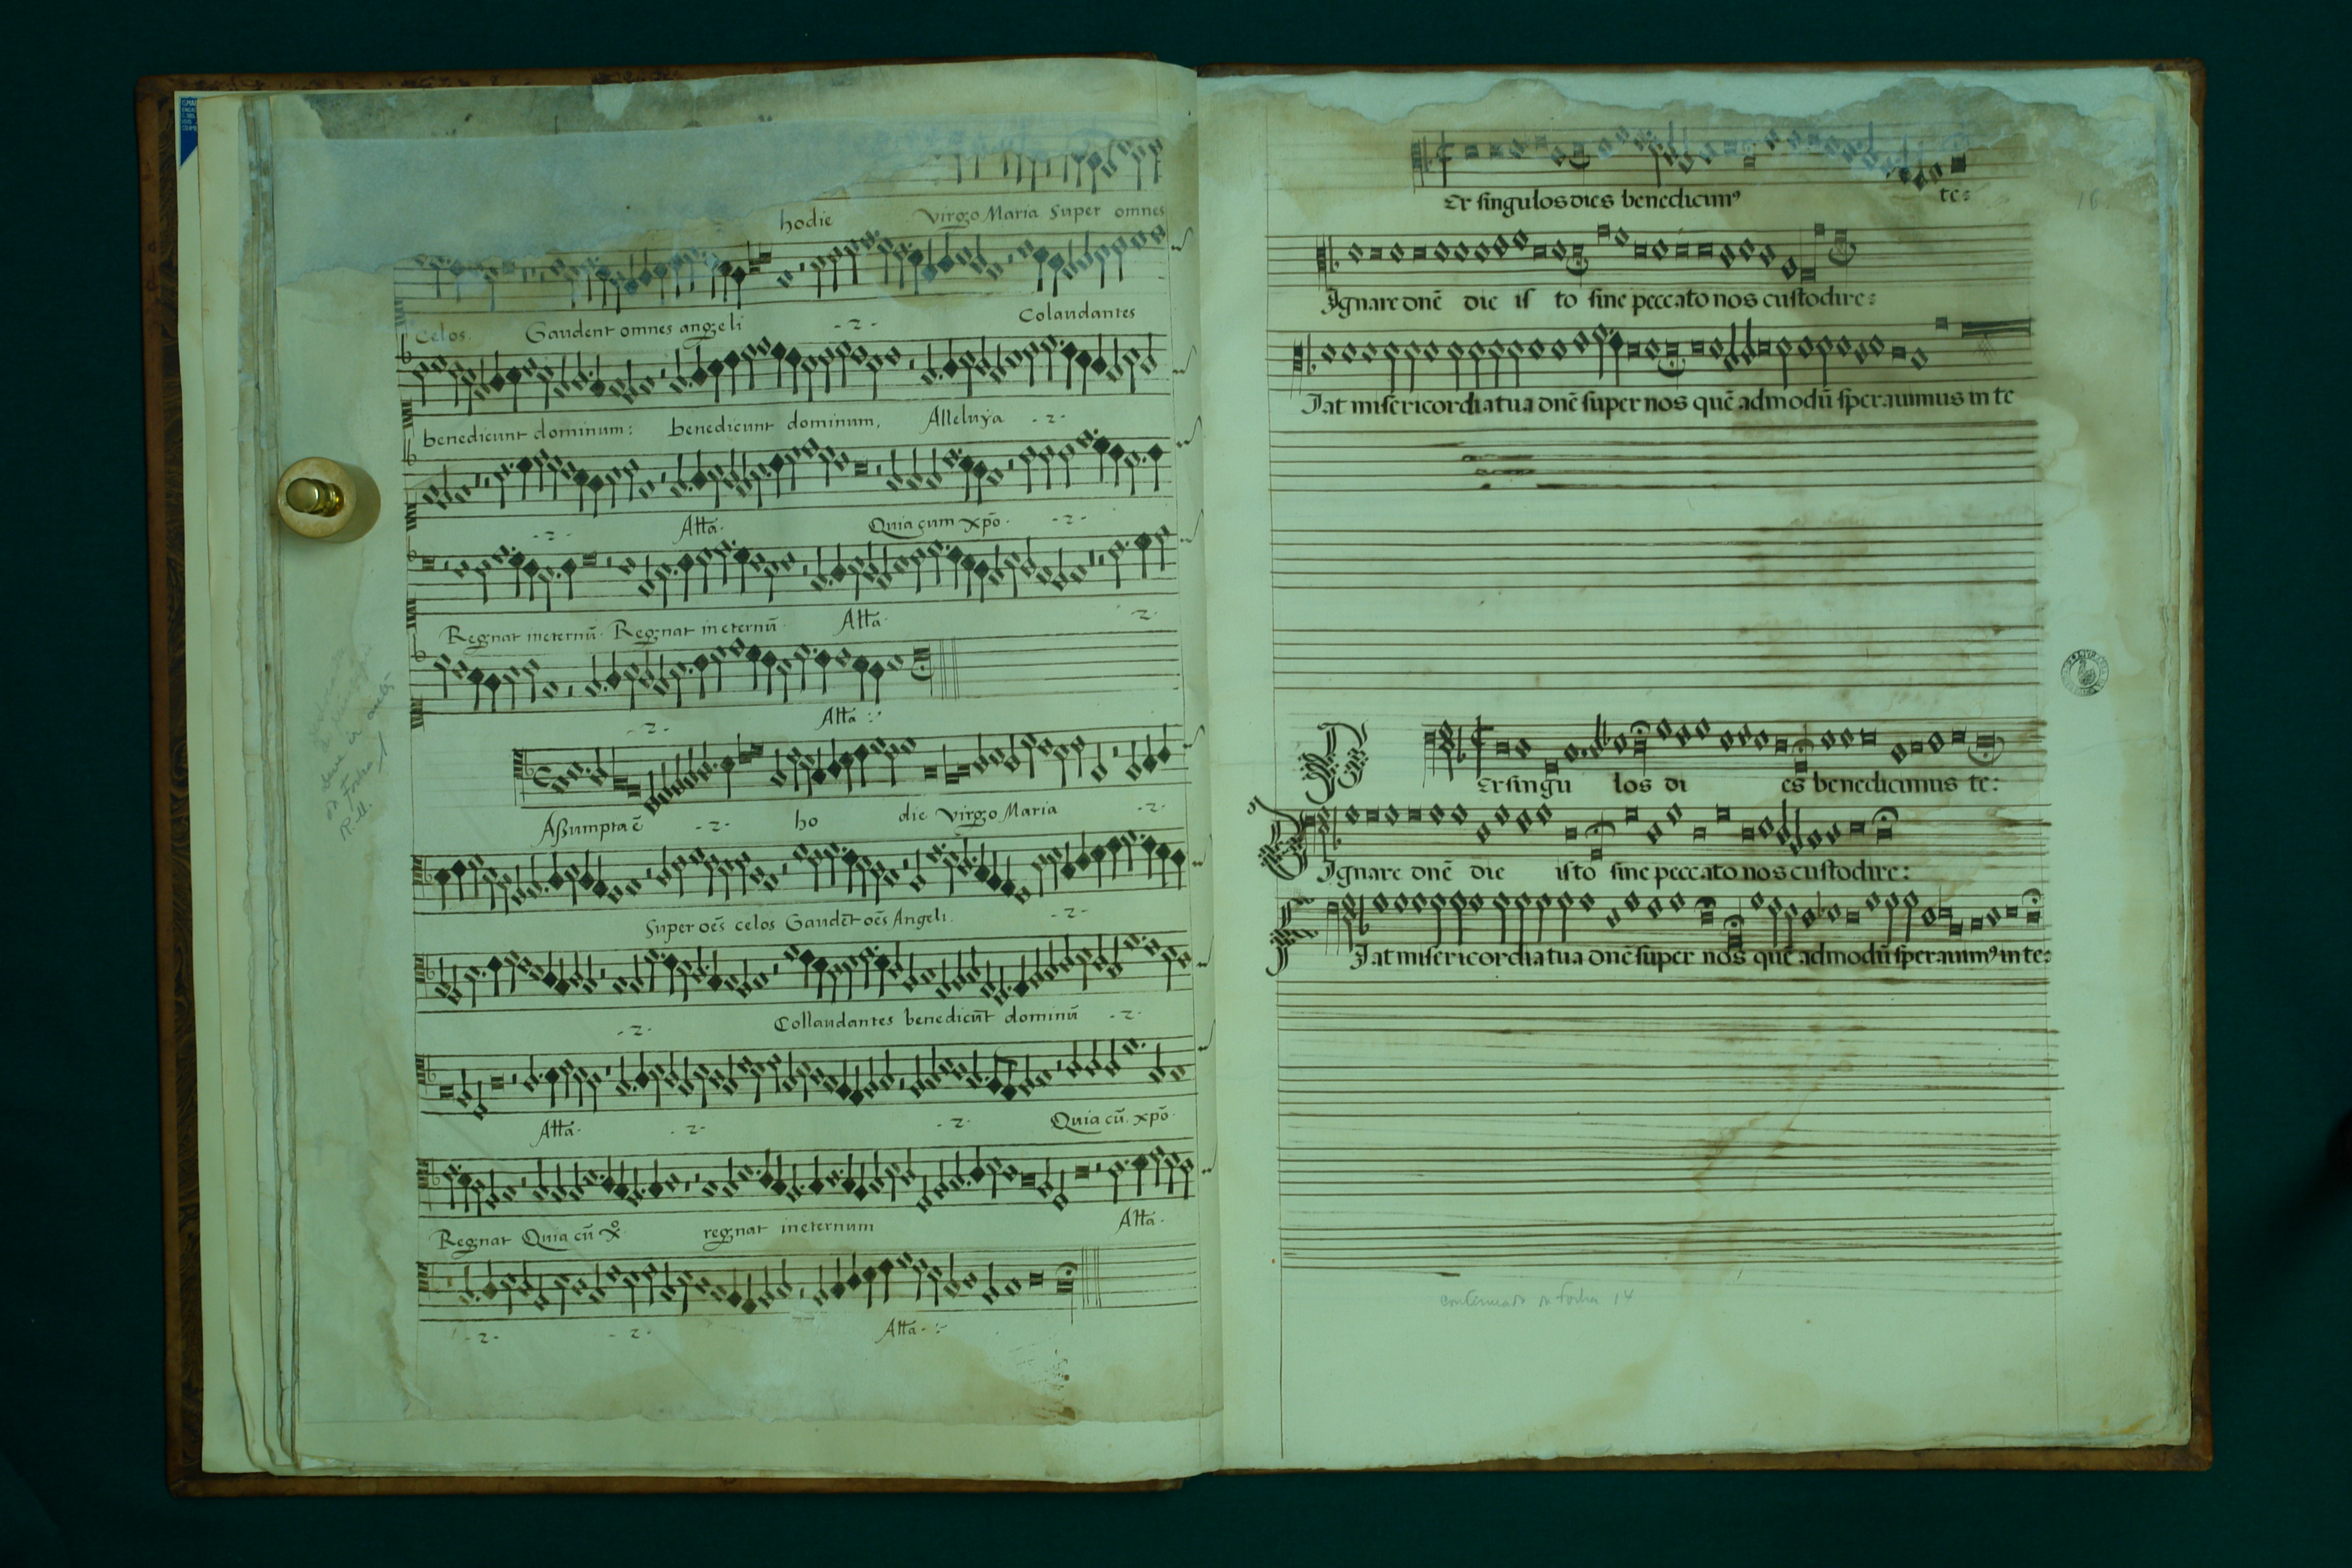 hodie virgo Maria Super omnes
Celos. Gaudent omnes angeli -2- Colaudantes
benedicunt dominum: benedicunt dominum, Alleluya -2-
-2- Alła. Quia cum xpō. -2-
Regnat ineternū. Regnat in eternū. Alła. 2.
-2- Alła :
Aßumpta ē -2- ho die virgo Maria -2-
Super oēs celos Gaudēt oēs Angeli. -2-
-2- Collaudantes benedicūt dominū -2-
Alła. -2- -2- Quia cū. xpō.
Regnat Quia cū xº. regnat ineternum Alła.
-2- -2- Alła - :
on folha
R. M.
16.
Er singulos dies benedicimꝰ te:
Ignare dnē die is to sine peccato nos custodire:
Iat misericordia tua dnē super nos quē admodū sperauimus in te
P Er singu los di es benedicimus te:
D Ignare dnē die isto sine peccato nos custodire:
F Iat misericordia tua dnē super nos quē admodū sperauimꝰ in te:
continuado na folha 14